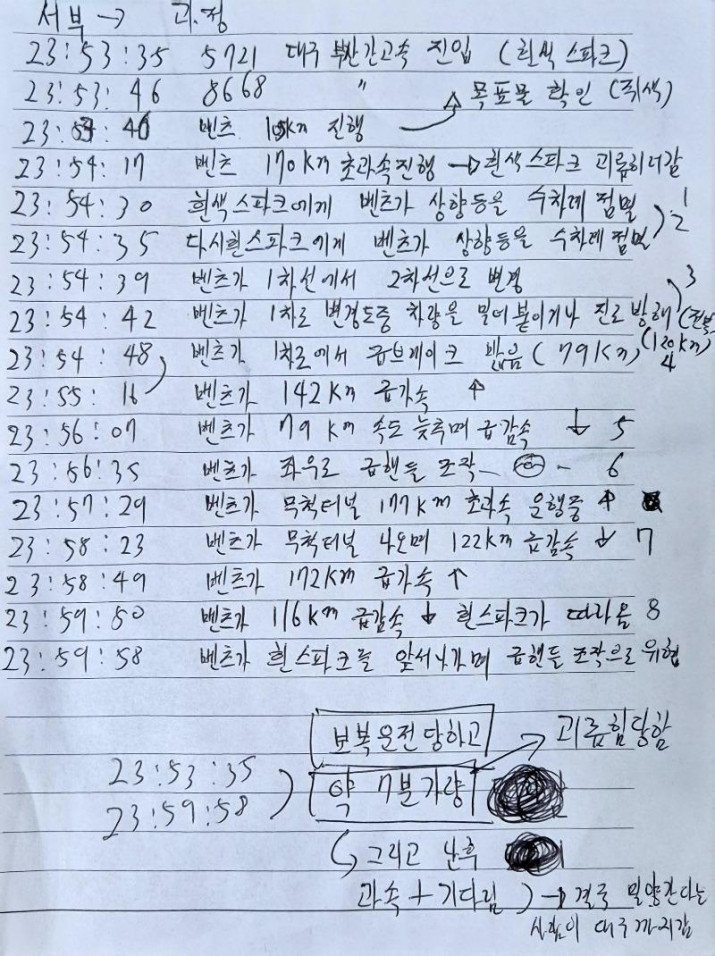 서부 → 과.정
23:53:35 5721 대구 부산간고속 진입 (흰색 스파크)
23:53:46 8668 〃 목표물 확인 (쥐색)
23: 46 벤츠 105km 진행
23:54:17 벤츠 170km 초과속진행 → 흰색스파크 괴롭히러감
23:54:30 흰색스파크에게 벤츠가 상향등을 수차례 점멸 1
23:54:35 다시흰스파크에게 벤츠가 상향등을 수차례 점멸 2
23:54:39 벤츠가 1차선에서 2차선으로 변경 3
23:54:42 벤츠가 1차로 변경도중 차량을 밀어붙이거나 진로 방해
23:54:48 벤츠가 1차로에서 급브레이크 밟음 (79km) (120km) 4
23:55:16 벤츠가 142km 급가속 ↑
23:56:07 벤츠가 79km 속도 늦추며 급감속 ↓ 5
23:56:35 벤츠가 좌우로 급핸들 조작 6
23:57:29 벤츠가 무척터널 177km 초과속 운행중 ↑
23:58:23 벤츠가 무척터널 나오며 122km 급감속 ↓ 7
23:58:49 벤츠가 172km 급가속 ↑
23:59:50 벤츠가 116km 급감속 ↓ 흰스파크가 따라옴 8
23:59:58 벤츠가 흰스파크를 앞서나가며 급핸들 조작으로 위협
보복운전당하고 → 괴롭힘당함
23:53:35
23:59:58 ) 약 7분가량
그리고 난후
과속 + 기다림 ) → 결국 밀양간다는
사람이 대구까지감